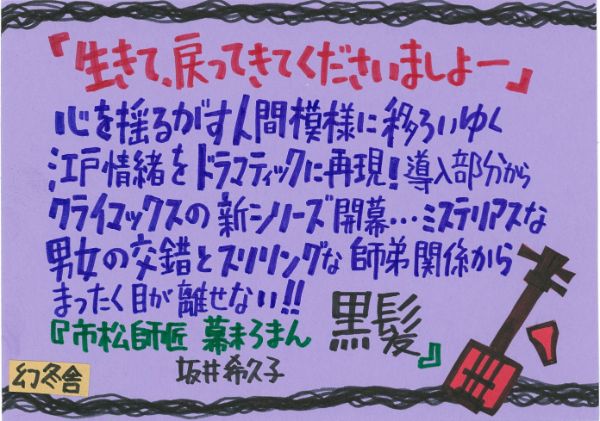 『生きて、戻ってきてくださいましよー』
心を揺るがす人間模様に移ろいゆく
江戸情緒をドラマティックに再現!導入部分から
クライマックスの新シリーズ開幕…ミステリアスな
男女の交錯とスリリングな師弟関係から
まったく目が離せない!!
『市松師匠 幕末ろまん 黒髪』
坂井希久子
幻冬舎